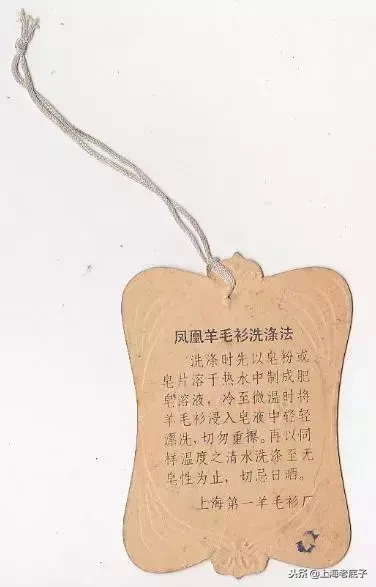 凤凰羊毛衫洗涤法
洗涤时先以皂粉或
皂片溶于热水中制成肥
皂溶液，冷至微温时将
羊毛衫浸入皂液中轻轻
漂洗，切勿重擦。再以同
样温度之清水洗涤至无
皂性为止，切忌日晒。
上海第一羊毛衫厂
头条@上海老底子